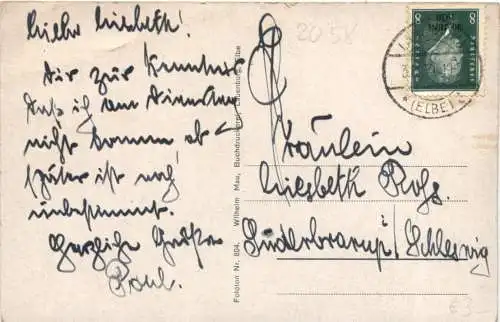 Liebe Liesbeth!
Dir zur Kenntnis
daß ich am Dienstag
nicht komme ob
später ist noch
unbestimmt.
Herzliche Grüße
Paul.
Fototon Nr. 894. Wilhelm Mau, Buchdruckerei, Lauenburg/Elbe
2058
8 8
(ELBE)
Fräulein
Liesbeth Rohs
Süderbrarup/Schleswig
€3-